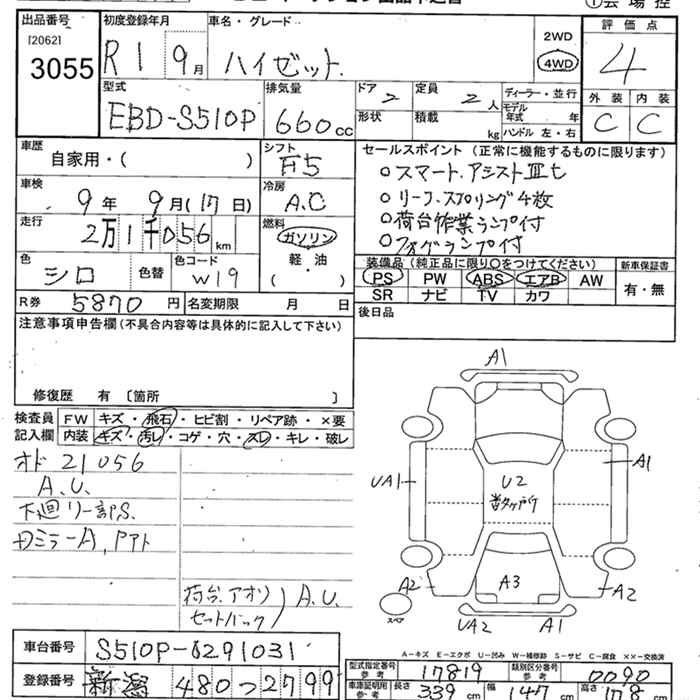 出品番号 初度登録年月 車名・グレード 2WD 評価点
[2062] 3055 R1 9月 ハイゼット 4WD 4
型式 排気量 ドア 2 定員 2人 ディーラー・並行 外装 内装
EBD-S510P 660cc 形状 積載 kg モデル年式 年 C C
ハンドル 左・右
車歴 自家用・( ) シフト F5 セールスポイント (正常に機能するものに限ります)
○スマートアシストⅢt
車検 9年 9月(17日) 冷房 A.C ○リーフスプリング4枚
○荷台作業ランプ付
走行 2万1千056km 燃料 ガソリン ○フォグランプ付
軽・油
( )
色 シロ 色替 色コード W19 装備品 (純正品に限り○をつけてください) 新車保証書
PS PW ABS エアB AW 有・無
SR ナビ TV カワ
R券 5870円 名変期限 月 日 後日品
注意事項申告欄(不具合内容等は具体的に記入して下さい)
修復歴 有 〔箇所 〕
検査員 FW キズ・飛石・ヒビ割・リペア跡・×要
記入欄 内装 キズ・汚レ・コゲ・穴・スレ・キレ・破レ
オド 21056
A.U.
下廻リ一部S.
荷台アオリ
セットバック
A.U.
A1
A1
UA1
U2
A2
A3
A2
スペア
UA2 A1
A-キズ E-エクボ U-凹み W-補修跡 S-サビ C-腐食 ××-交換済
車台番号 S510P-0291031
登録番号 新潟 480 つ 2799
型式指定番号 参考 17819 類別区分番号 参考 0090
車庫証明用 参考 長さ 339cm 幅 147cm 高さ 178cm